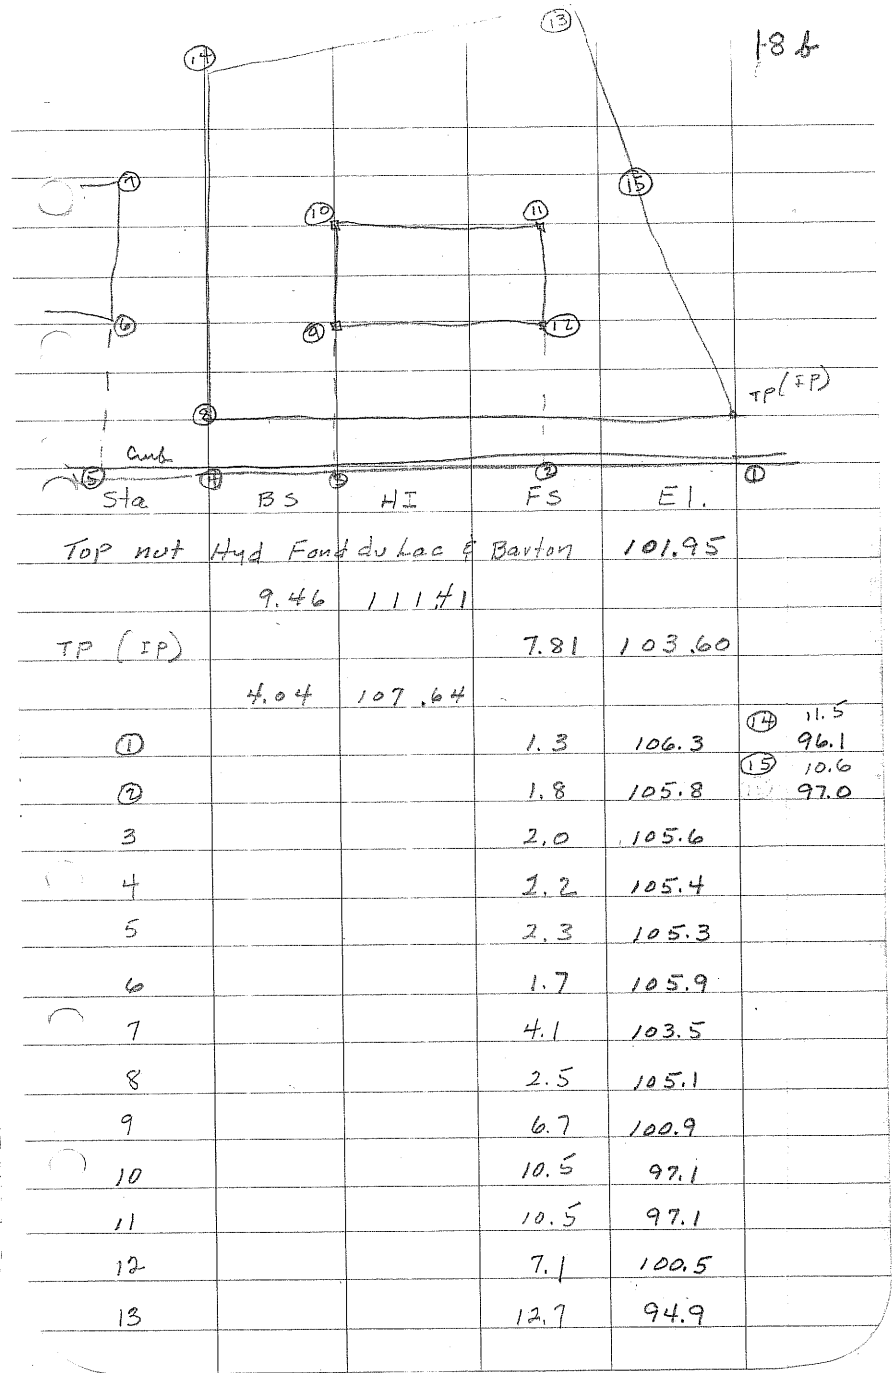 18 b
13
14
7
15
10 11
6 9 12
TP (IP)
8
Curb
5 4 3 2 1
Sta BS HI FS El.
Top nut Hyd Fond du Lac & Barton 101.95
9.46 111.41
TP (IP) 7.81 103.60
4.04 107.64
14 11.5
1 1.3 106.3 96.1
15 10.6
2 1.8 105.8 97.0
3 2.0 105.6
4 2.2 105.4
5 2.3 105.3
6 1.7 105.9
7 4.1 103.5
8 2.5 105.1
9 6.7 100.9
10 10.5 97.1
11 10.5 97.1
12 7.1 100.5
13 12.7 94.9